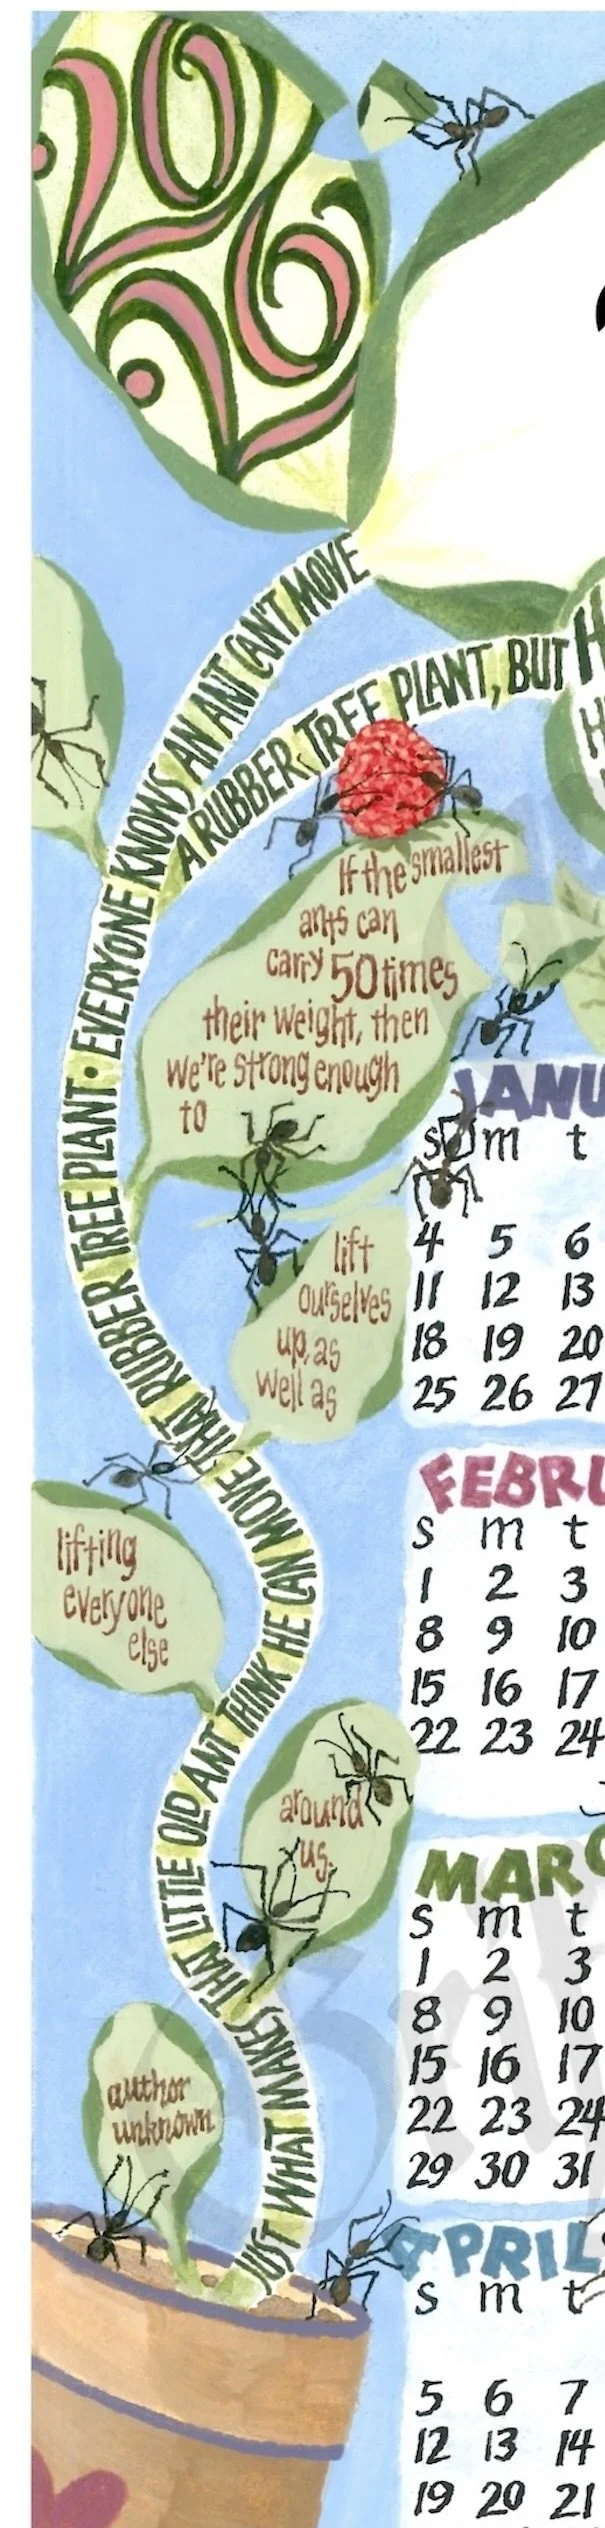 2026
JUST WHAT MAKES THAT LITTLE OLD ANT THINK HE CAN MOVE THAT RUBBER TREE PLANT • EVERYONE KNOWS AN ANT CAN'T MOVE
A RUBBER TREE PLANT, BUT H
H
If the smallest
ants can
carry 50 times
their weight, then
we're strong enough
to
lift
ourselves
up, as
well as
lifting
everyone
else
around
us.
author
unknown
JANU
s m t
4 5 6
11 12 13
18 19 20
25 26 27
FEBRU
s m t
1 2 3
8 9 10
15 16 17
22 23 24
MARC
s m t
1 2 3
8 9 10
15 16 17
22 23 24
29 30 31
APRIL
s m t
5 6 7
12 13 14
19 20 21